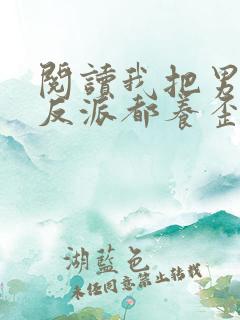 閱讀我把男
反派都養歪
湖藍色
未經同意禁止轉載